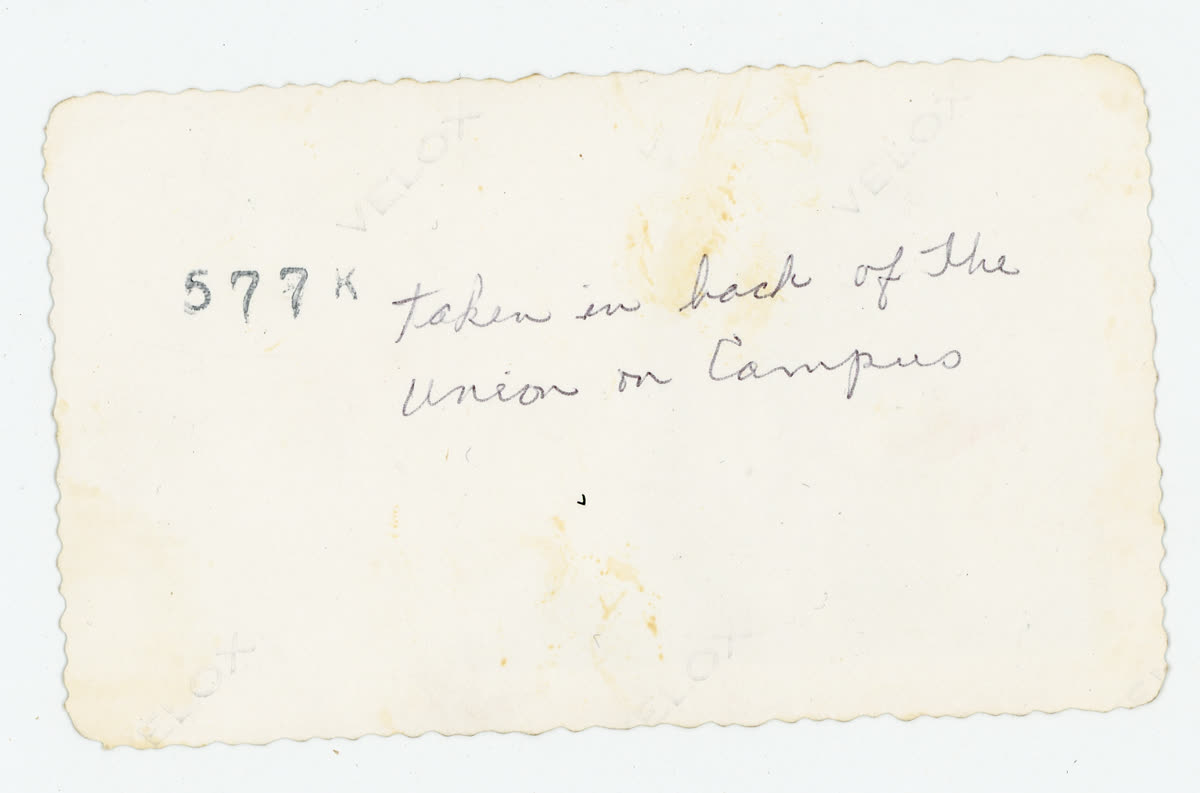 VELOX
VELOX
577K
taken in back of The
Union on Campus
VELOX
VELOX